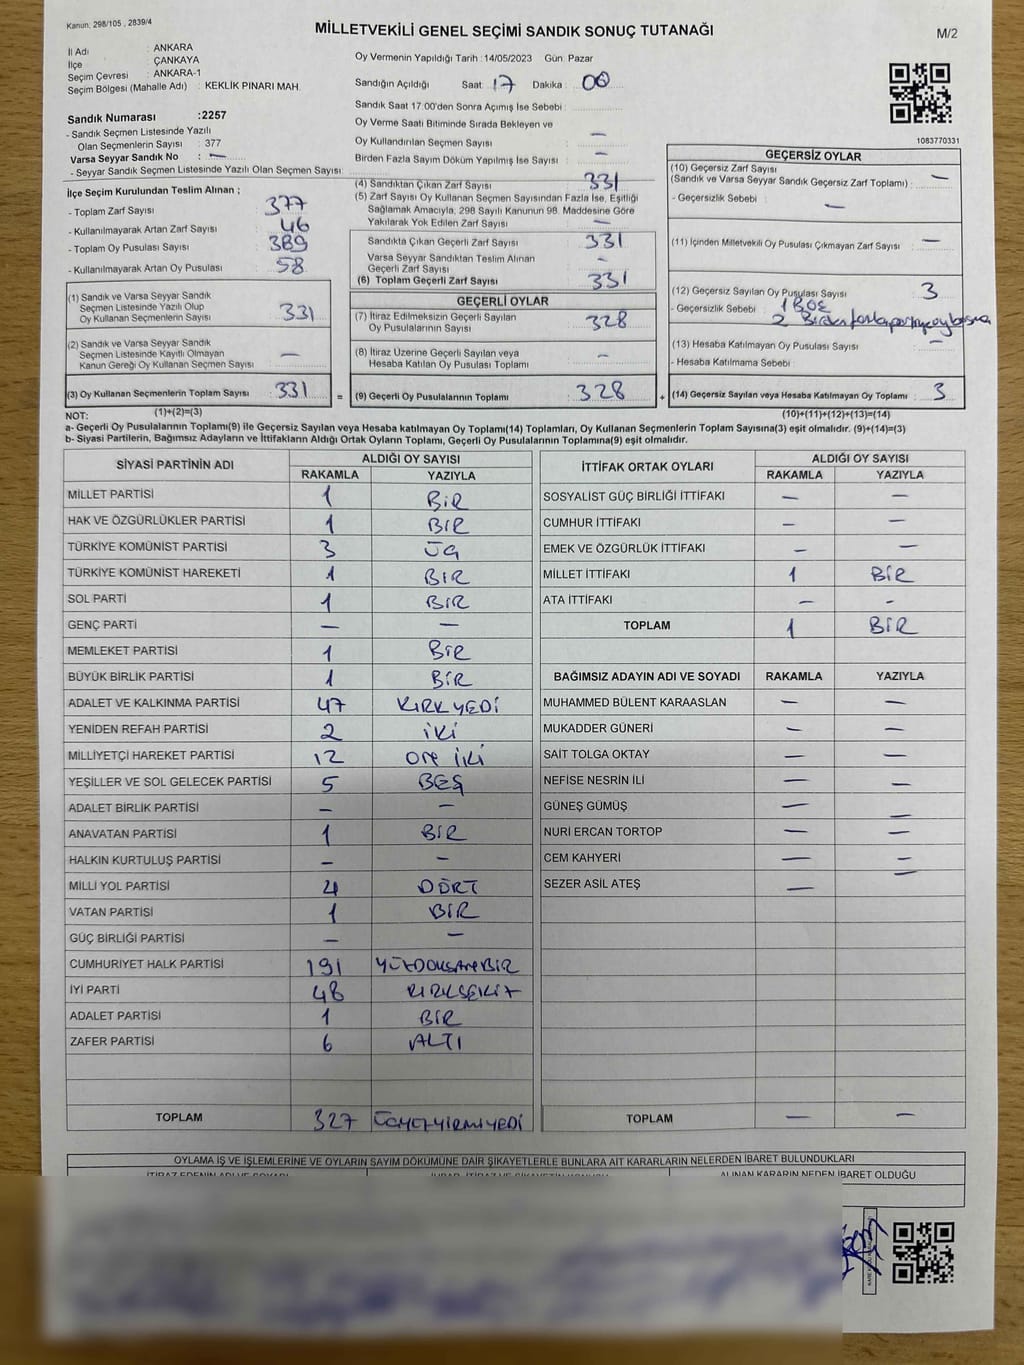 Kanun, 298/105 , 2839/4
MİLLETVEKİLİ GENEL SEÇİMİ SANDIK SONUÇ TUTANAĞI
M/2
İl Adı : ANKARA
İlçe : ÇANKAYA
Seçim Çevresi : ANKARA-1
Seçim Bölgesi (Mahalle Adı) : KEKLİK PINARI MAH.
Sandık Numarası :2257
- Sandık Seçmen Listesinde Yazılı
Olan Seçmenlerin Sayısı : 377
Varsa Seyyar Sandık No : —
- Seyyar Sandık Seçmen Listesinde Yazılı Olan Seçmen Sayısı:
Oy Vermenin Yapıldığı Tarih : 14/05/2023 Gün : Pazar
Sandığın Açıldığı Saat : 17 Dakika : 00
Sandık Saat 17:00'den Sonra Açımış İse Sebebi :
Oy Verme Saati Bitiminde Sırada Bekleyen ve
Oy Kullandırılan Seçmen Sayısı : —
Birden Fazla Sayım Döküm Yapılmış İse Sayısı : —
1083770331
İlçe Seçim Kurulundan Teslim Alınan ;
- Toplam Zarf Sayısı : 377
- Kullanılmayarak Artan Zarf Sayısı : 46
- Toplam Oy Pusulası Sayısı : 389
- Kullanılmayarak Artan Oy Pusulası : 58
(1) Sandık ve Varsa Seyyar Sandık
Seçmen Listesinde Yazılı Olup
Oy Kullanan Seçmenlerin Sayısı : 331
(2) Sandık ve Varsa Seyyar Sandık
Seçmen Listesinde Kayıtlı Olmayan
Kanun Gereği Oy Kullanan Seçmen Sayısı : —
(3) Oy Kullanan Seçmenlerin Toplam Sayısı : 331
(4) Sandıktan Çıkan Zarf Sayısı : 331
(5) Zarf Sayısı Oy Kullanan Seçmen Sayısından Fazla İse, Eşitliği
Sağlamak Amacıyla, 298 Sayılı Kanunun 98. Maddesine Göre
Yakılarak Yok Edilen Zarf Sayısı : —
Sandıkta Çıkan Geçerli Zarf Sayısı : 331
Varsa Seyyar Sandıktan Teslim Alınan
Geçerli Zarf Sayısı : -
(6) Toplam Geçerli Zarf Sayısı : 331
GEÇERLİ OYLAR
(7) İtiraz Edilmeksizin Geçerli Sayılan
Oy Pusulalarının Sayısı : 328
(8) İtiraz Üzerine Geçerli Sayılan veya
Hesaba Katılan Oy Pusulası Toplamı : -
= (9) Geçerli Oy Pusulalarının Toplamı : 328
GEÇERSİZ OYLAR
(10) Geçersiz Zarf Sayısı
(Sandık ve Varsa Seyyar Sandık Geçersiz Zarf Toplamı) : —
- Geçersizlik Sebebi : —
(11) İçinden Milletvekili Oy Pusulası Çıkmayan Zarf Sayısı : —
(12) Geçersiz Sayılan Oy Pusulası Sayısı : 3
- Geçersizlik Sebebi : 1 BOŞ
2 Birden fazla partiye oy basma
(13) Hesaba Katılmayan Oy Pusulası Sayısı : —
- Hesaba Katılmama Sebebi :
+ (14) Geçersiz Sayılan veya Hesaba Katılmayan Oy Toplamı : 3
NOT: (1)+(2)=(3)
(10)+(11)+(12)+(13)=(14)
a- Geçerli Oy Pusulalarının Toplamı(9) ile Geçersiz Sayılan veya Hesaba katılmayan Oy Toplamı(14) Toplamları, Oy Kullanan Seçmenlerin Toplam Sayısına(3) eşit olmalıdır. (9)+(14)=(3)
b- Siyasi Partilerin, Bağımsız Adayların ve İttifakların Aldığı Ortak Oyların Toplamı, Geçerli Oy Pusulalarının Toplamına(9) eşit olmalıdır.
SİYASİ PARTİNİN ADI ALDIĞI OY SAYISI
RAKAMLA YAZIYLA
MİLLET PARTİSİ 1 BİR
HAK VE ÖZGÜRLÜKLER PARTİSİ 1 BİR
TÜRKİYE KOMÜNİST PARTİSİ 3 ÜÇ
TÜRKİYE KOMÜNİST HAREKETİ 1 BİR
SOL PARTİ 1 BİR
GENÇ PARTİ — —
MEMLEKET PARTİSİ 1 BİR
BÜYÜK BİRLİK PARTİSİ 1 BİR
ADALET VE KALKINMA PARTİSİ 47 KIRKYEDİ
YENİDEN REFAH PARTİSİ 2 İKİ
MİLLİYETÇİ HAREKET PARTİSİ 12 ON İKİ
YEŞİLLER VE SOL GELECEK PARTİSİ 5 BEŞ
ADALET BİRLİK PARTİSİ — —
ANAVATAN PARTİSİ 1 BİR
HALKIN KURTULUŞ PARTİSİ — —
MİLLİ YOL PARTİSİ 4 DÖRT
VATAN PARTİSİ 1 BİR
GÜÇ BİRLİĞİ PARTİSİ — —
CUMHURİYET HALK PARTİSİ 191 YÜZDOKSANBİR
İYİ PARTİ 48 KIRKSEKİZ
ADALET PARTİSİ 1 BİR
ZAFER PARTİSİ 6 ALTI
TOPLAM 327 ÜÇYÜZYİRMİYEDİ
İTTİFAK ORTAK OYLARI ALDIĞI OY SAYISI
RAKAMLA YAZIYLA
SOSYALİST GÜÇ BİRLİĞİ İTTİFAKI — —
CUMHUR İTTİFAKI — —
EMEK VE ÖZGÜRLÜK İTTİFAKI — —
MİLLET İTTİFAKI 1 BİR
ATA İTTİFAKI — -
TOPLAM 1 BİR
BAĞIMSIZ ADAYIN ADI VE SOYADI RAKAMLA YAZIYLA
MUHAMMED BÜLENT KARAASLAN — —
MUKADDER GÜNERİ — —
SAİT TOLGA OKTAY — —
NEFİSE NESRİN İLİ — —
GÜNEŞ GÜMÜŞ — —
NURİ ERCAN TORTOP — —
CEM KAHYERİ — —
SEZER ASİL ATEŞ — —
TOPLAM — —
OYLAMA İŞ VE İŞLEMLERİNE VE OYLARIN SAYIM DÖKÜMÜNE DAİR ŞİKAYETLERLE BUNLARA AİT KARARLARIN NELERDEN İBARET BULUNDUKLARI
ALINAN KARARIN NEDEN İBARET OLDUĞU